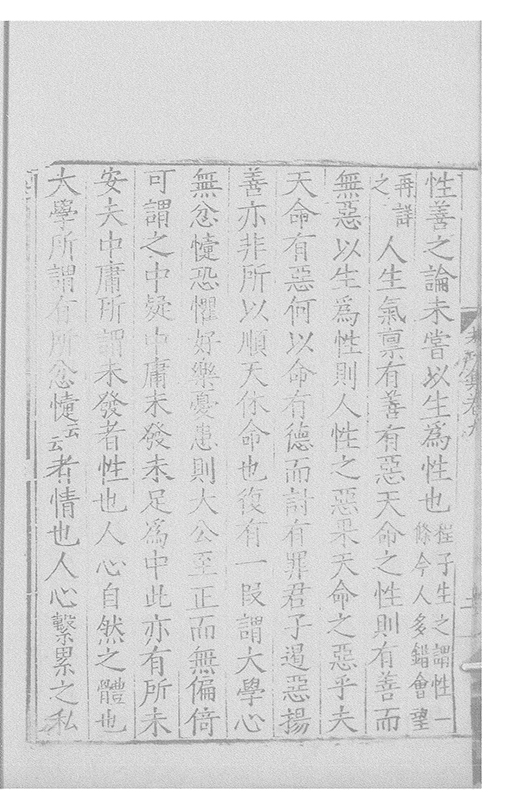 性善之論未嘗以生爲性也程子生之謂性一
條今人多錯會望
再詳
之人生氣禀有善有惡天命之性則有善而
無惡以生爲性則人性之惡果天命之惡乎夫
天命有惡何以命有德而討有罪君子遏惡揚
善亦非所以順天休命也復有一段謂大學心
無忿懥恐懼好樂憂患則大公至正而無偏倚
可謂之中疑中庸未發未足爲中此亦有所未
安夫中庸所謂未發者性也人心自然之體也
大學所謂有所忿懥云云者情也人心繫累之私